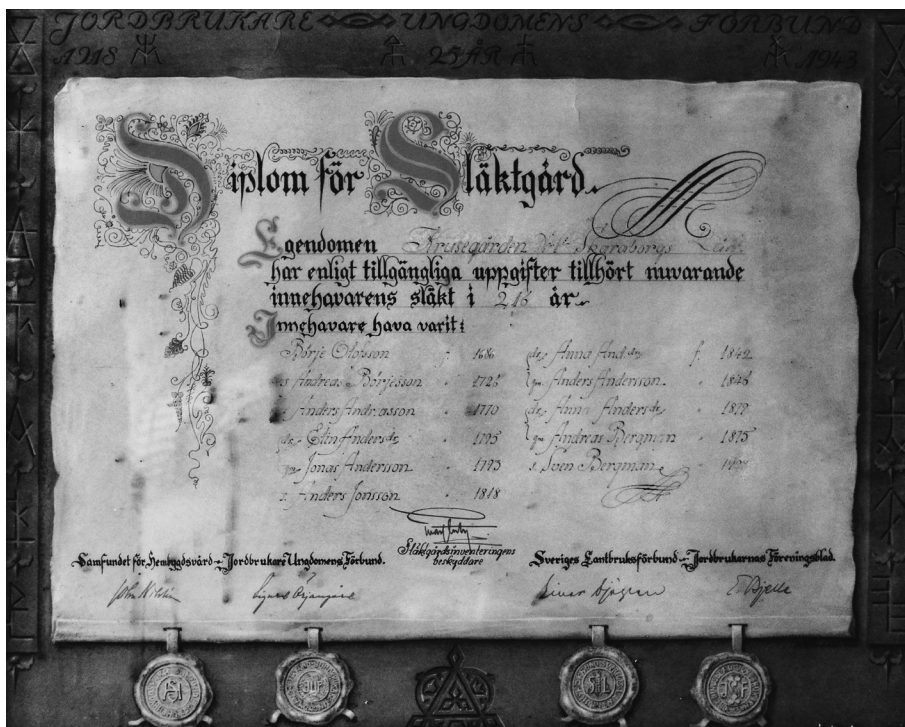 JORDBRUKARE UNGDOMENS FÖRBUND
1918 25 ÅR 1943
Diplom för Släktgård
Egendomen Krusegården Skaraborgs Län
har enligt tillgängliga uppgifter tillhört nuvarande
innehavarens släkt i 216 år
Innehavare hava varit:
Börje Olofsson f. 1686
s. Andreas Börjesson 1726
Anders Andreasson 1770
dr. Elin Andersdr. 1795
gm Jonas Andersson 1793
s. Anders Jonsson 1818
dr. Anna And.dr. f. 1842
gm Anders Andersson 1846
dr. Anna Andersdr.
gm Andreas Bergman 1875
s. Sven Bergman
Släktgårdsinventeringens
beskyddare
Samfundet för Hembygdsvård Jordbrukare Ungdomens Förbund.
Sveriges Lantbruksförbund Jordbrukarnas Föreningsblad.
JUF
SL
JF